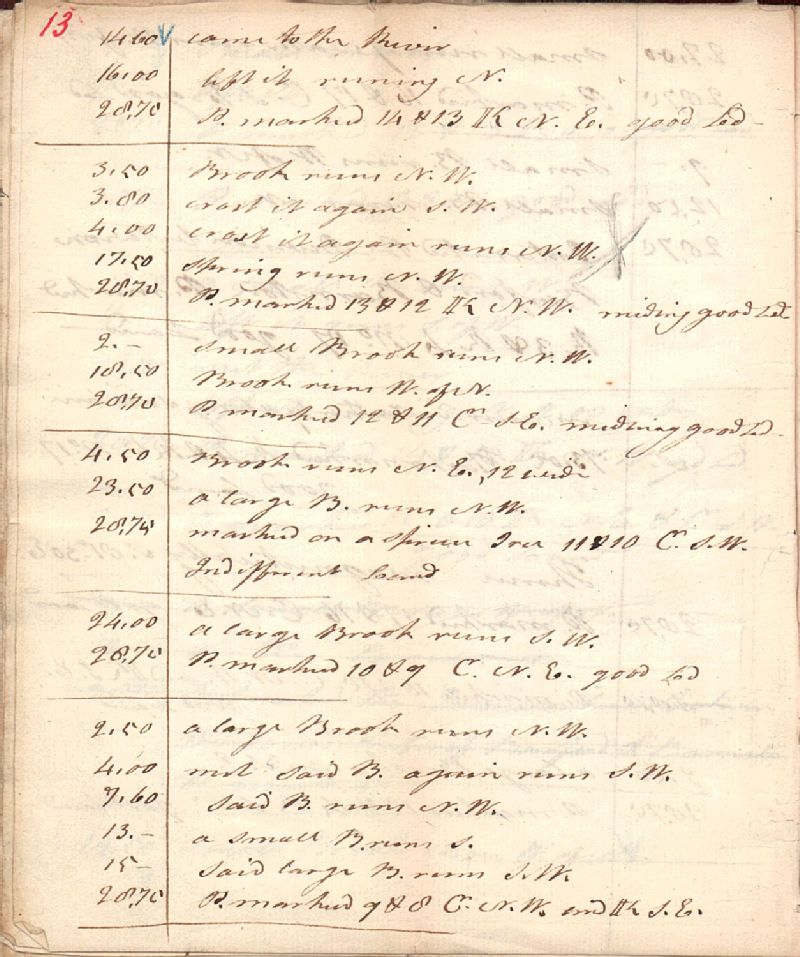 13
14.60 came to the River
16.00 left it runing N.
28.70 P. marked 14 & 13 K N. E. good Ld
3.50 Brook runs N. W.
3.80 crost it again S. W.
4.00 crost it again runs N. W.
17.50 spring runs N. W.
28.70 P. marked 13 & 12 K N. W. midling good Ld
2.— small Brook runs N. W.
18.50 Brook runs W. of N.
28.70 P marked 12 & 11 C S. E. midling good Ld
4.50 Brook runs N. E. 12 wide
23.50 a large B. runs N. W.
28.75 marked on a spruce Tree 11 & 10 C. S. W.
Indifferent Land
24.00 a large Brook runs S. W.
28.75 P. marked 10 & 9 C. N. E. good Ld
2.50 a large Brook runs N. W.
4.00 met said B. again runs S. W.
7.60 said B. runs N. W.
13.— a small B. runs S.
15— said large B. runs S. W.
28.75 P. marked 9 & 8 C. N. W. and K S. E.